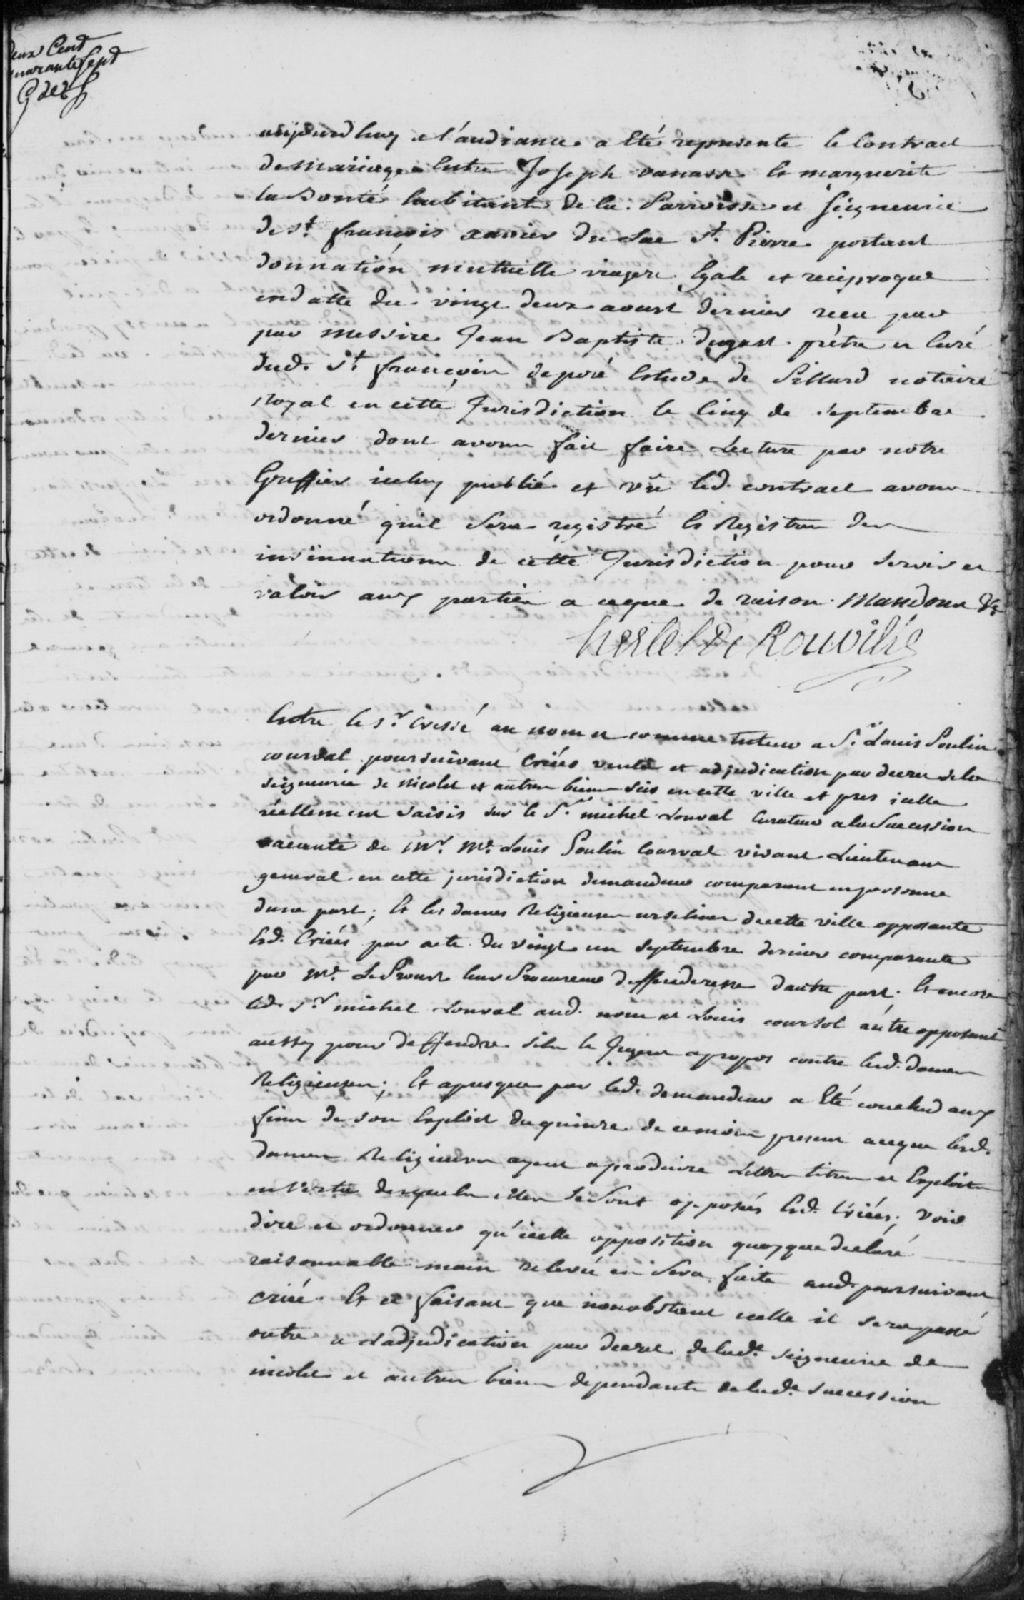 deux Cent
quarante Sept
aujourd'huy a l'audiance a Eté representé le Contract
de Mariage Entre Joseph vanasse Et marguerite
La Bonté habitants de la Parroisse et Seigneurie
de St. françois xavier du Lac St. Pierre portant
donnation mutuelle viagere Egale et reciproque
en datte du vingt deux aoust dernier receu par
par Messire Jean Baptiste dugast prêtre et Curé
dud. St. françois deposé Estude de Pillard notaire
Royal en cette Jurisdiction le Cinq de Septembre
dernier dont avons fait faire Lecture par notre
Greffier iceluy publié et vû led. contract avons
ordonné qu'il sera registré Es Registres des
insinuations de cette Jurisdiction pour servir et
valoir aux parties a ceque de raison. Mandons &c
hertel De Rouville
Entre le Sr. Cressé au nom et comme tuteur a Sr. Louis Poulin
courval poursuivant Criées vente et adjudication par decret de la
Seigneurie de Nicolet et autres biens sis en cette ville et pres icelle
réellement saisis sur le Sr. michel Louval Curateur a la Succession
vacante de Mr. Me. Louis Poulin Courval vivant Lieutenant
general en cette jurisdiction demandeur comparant en personne
d'une part; Et les dames Religieuses urselines de cette ville opposante
Esd. Criées par acte du vingt un septembre dernier comparante
par Me. Le Proust leur Procureur deffenderesse d'autre part. Et encore
led. Sr. michel Louval aud. nom et Louis courtol autre opposant
aussy pour deffendre silz le Jugent apropos contre lesd. dames
Religieuses; Et apresque par led. demandeur a Eté conclud aux
fins de son Exploit du quinze de ce mois present aceque lesd.
dames Religieuses ayent a produire Lettres titres et Exploits
en vertu desquels elles se sont opposés Esd. Criées; voir
dire et ordonner qu'icelle opposition quoyque declaré
raisonnable main relevée en sera faite aud. poursuivant
criée. Et ce faisant que nonobstant icelle il sera passé
outre a L'adjudication par decret de lade. Seigneurie de
nicolet et autres biens dependants de lade. succession